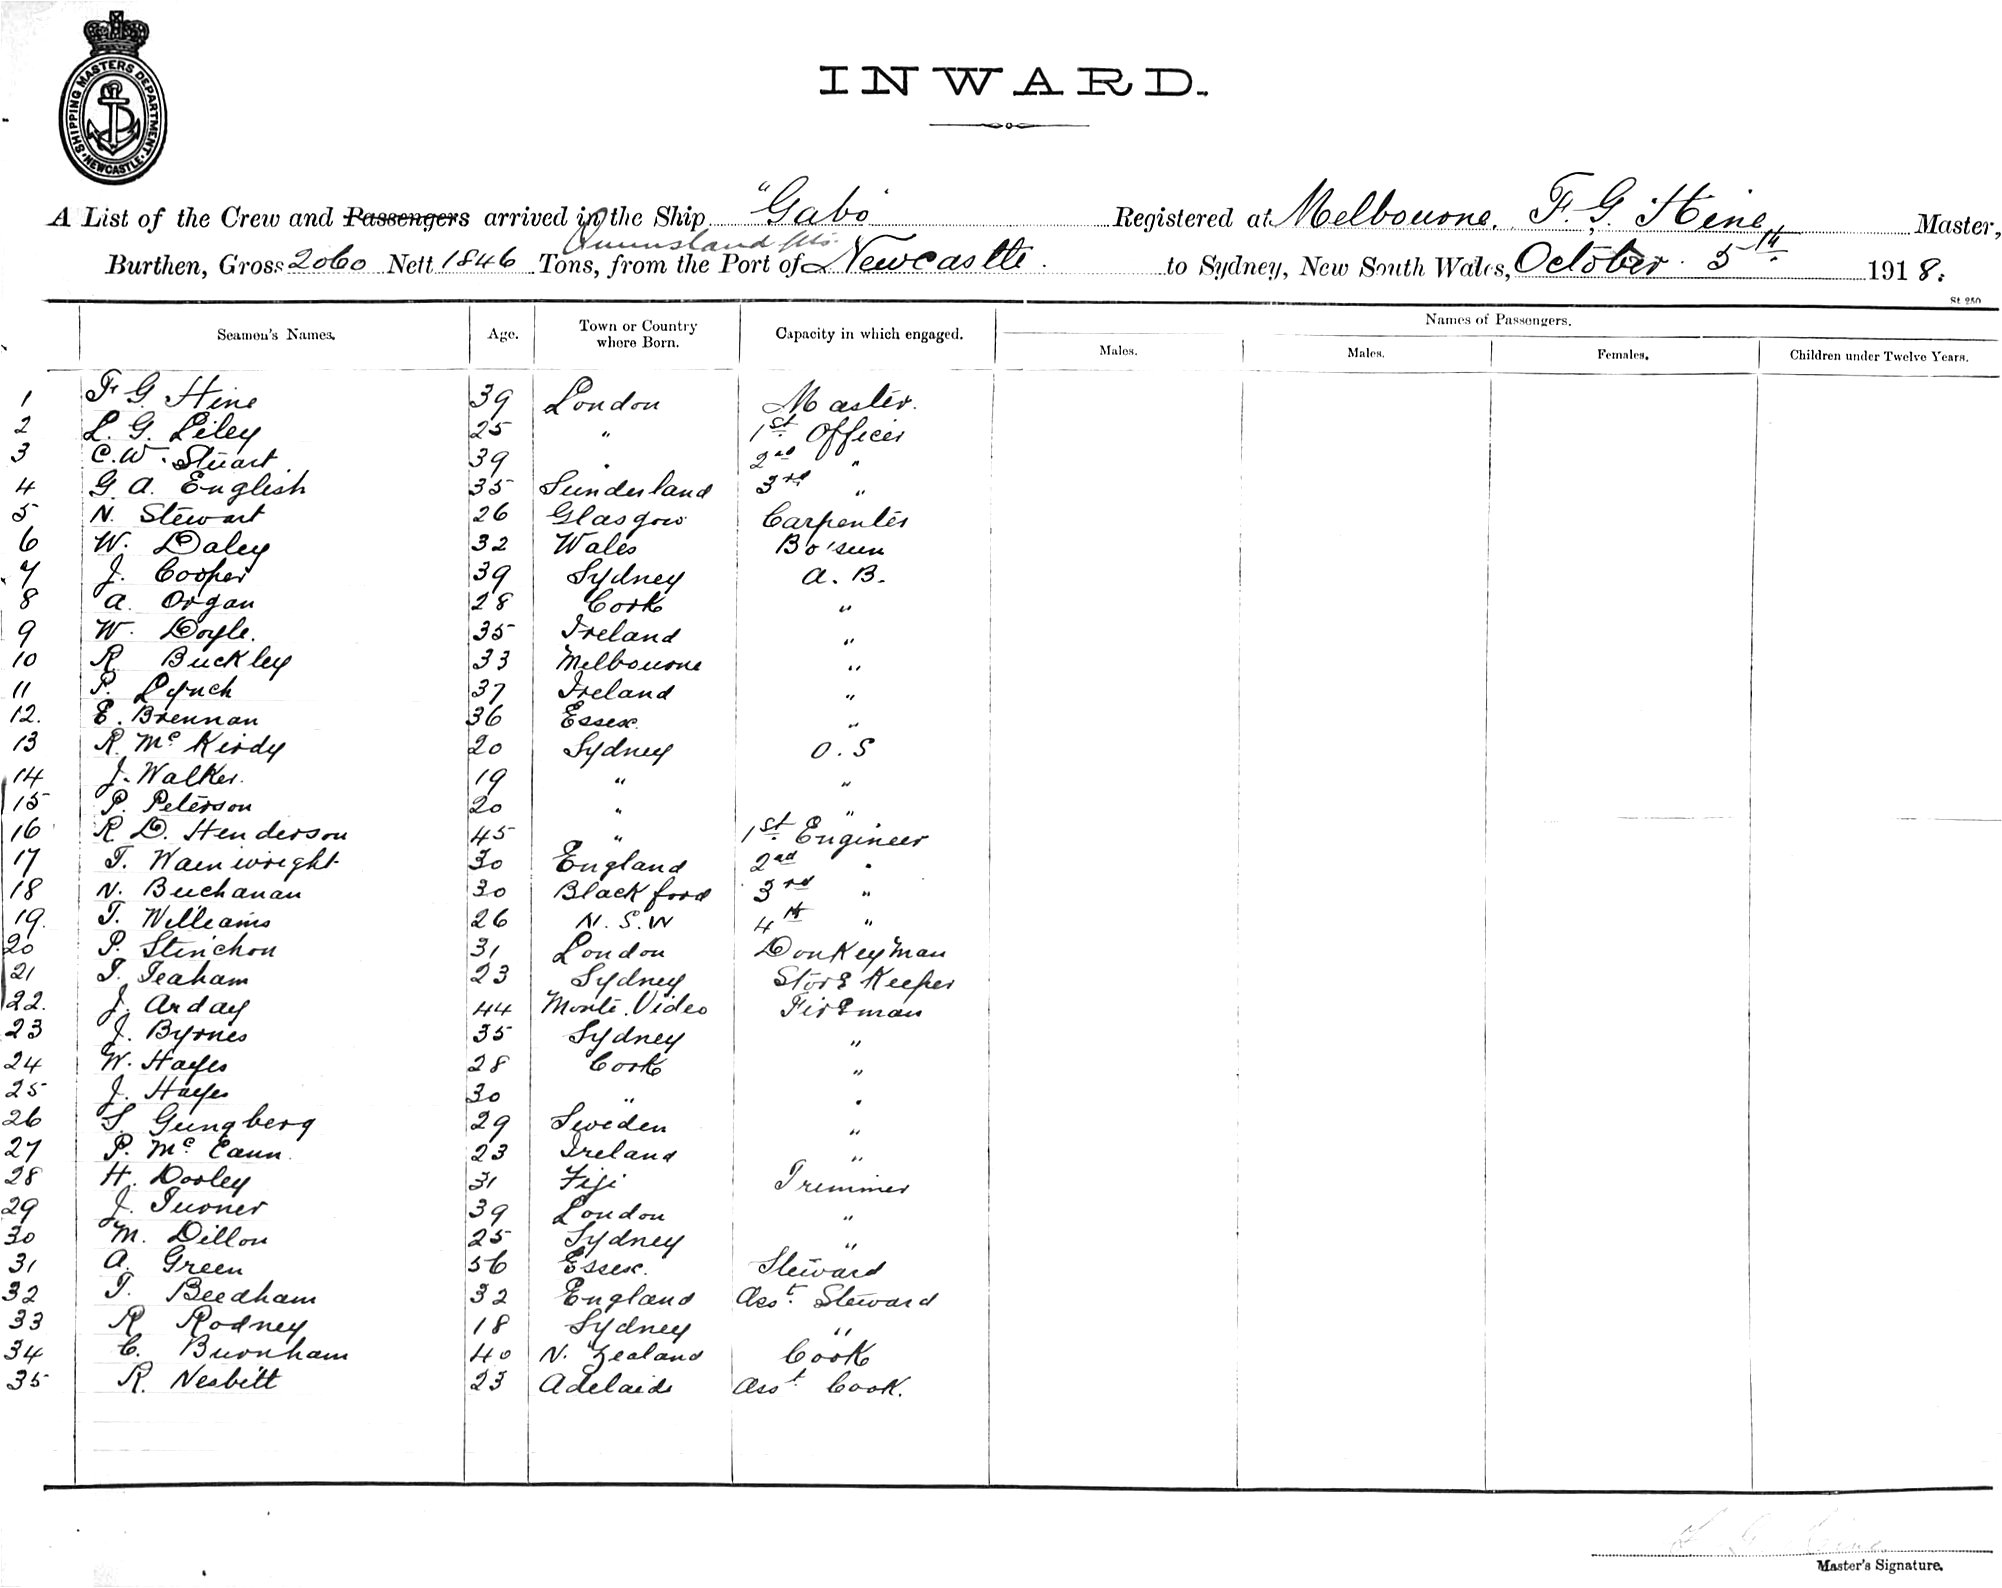 SHIPPING MASTERS DEPARTMENT
NEWCASTLE
INWARD.
A List of the Crew and Passengers arrived in the Ship "Gabo" Registered at Melbourne. F. G. Hine Master,
Queensland
Burthen, Gross 2060 Nett 1846 Tons, from the Port of Newcastle. to Sydney, New South Wales, October 5th 1918.
St 250
Seamen's Names. Age. Town or Country where Born. Capacity in which engaged. Names of Passengers.
Males. Males. Females. Children under Twelve Years.
1 F. G. Hine 39 London Master.
2 L. G. Liley 25 " 1st Officer
3 C. W. Stuart 39 " 2nd "
4 G. A. English 35 Sunderland 3rd "
5 N. Stewart 26 Glasgow Carpenter
6 W. Daley 32 Wales Bo'sun
7 J. Cooper 39 Sydney A. B.
8 A. Organ 28 Cork "
9 W. Doyle. 35 Ireland "
10 R Buckley 33 Melbourne "
11 P. Lynch 37 Ireland "
12. E. Brennan 36 Essex. "
13 R. Mc Kirdy 20 Sydney O. S
14 J. Walker. 19 " "
15 P. Peterson 20 " "
16 R D. Henderson 45 " 1st Engineer
17 T. Wainwright 30 England 2nd "
18 N. Buchanan 30 Blackford 3rd "
19. T. Williams 26 N. S. W 4th "
20 P. Stinchon 31 London Donkeyman
21 T. Teaham 23 Sydney Store Keeper
22. J. Arday 44 Monte. Video Fireman
23 J. Byrnes 35 Sydney "
24 W. Hayes 28 Cork "
25 J. Hayes 30 " "
26 S. Gungberg 29 Sweden "
27 P. Mc Cann. 23 Ireland "
28 H. Dooley 31 Fiji Trimmer
29 J. Turner 39 London "
30 M. Dillon 25 Sydney "
31 A. Green 56 Essex. Steward
32 T. Beedham 32 England Asst. Steward
33 R Rodney 18 Sydney "
34 C. Burnham 40 N. Zealand Cook
35 R. Nesbitt 23 Adelaide Asst Cook.
Master's Signature.